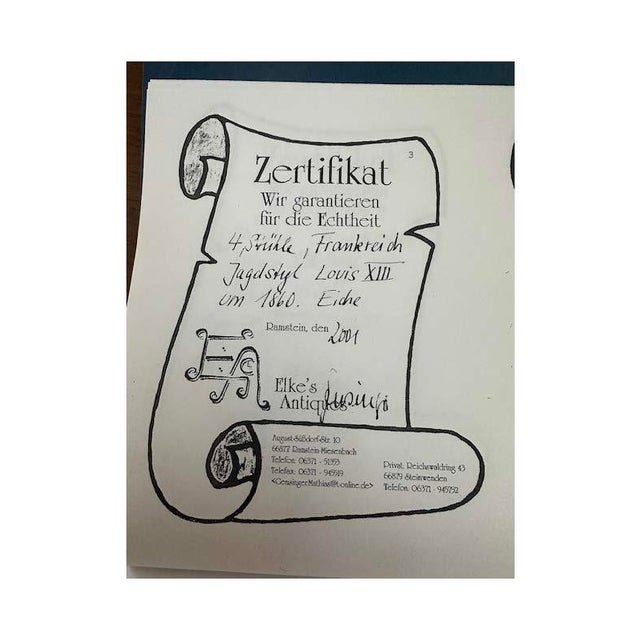 3
Zertifikat
Wir garantieren
für die Echtheit
4 Stühle, Frankreich
Jagdstyl Louis XIII
um 1860. Eiche
Ramstein, den 2001
EA
Elke's
Antiques
August-Süßdorf-Str. 10
66877 Ramstein-Miesenbach
Telefon: 06371 - 51353
Telefax: 06371 - 945919
<GensingerMathias@t-online.de>
Privat: Reichswaldring 43
66879 Steinwenden
Telefon: 06371 - 945752